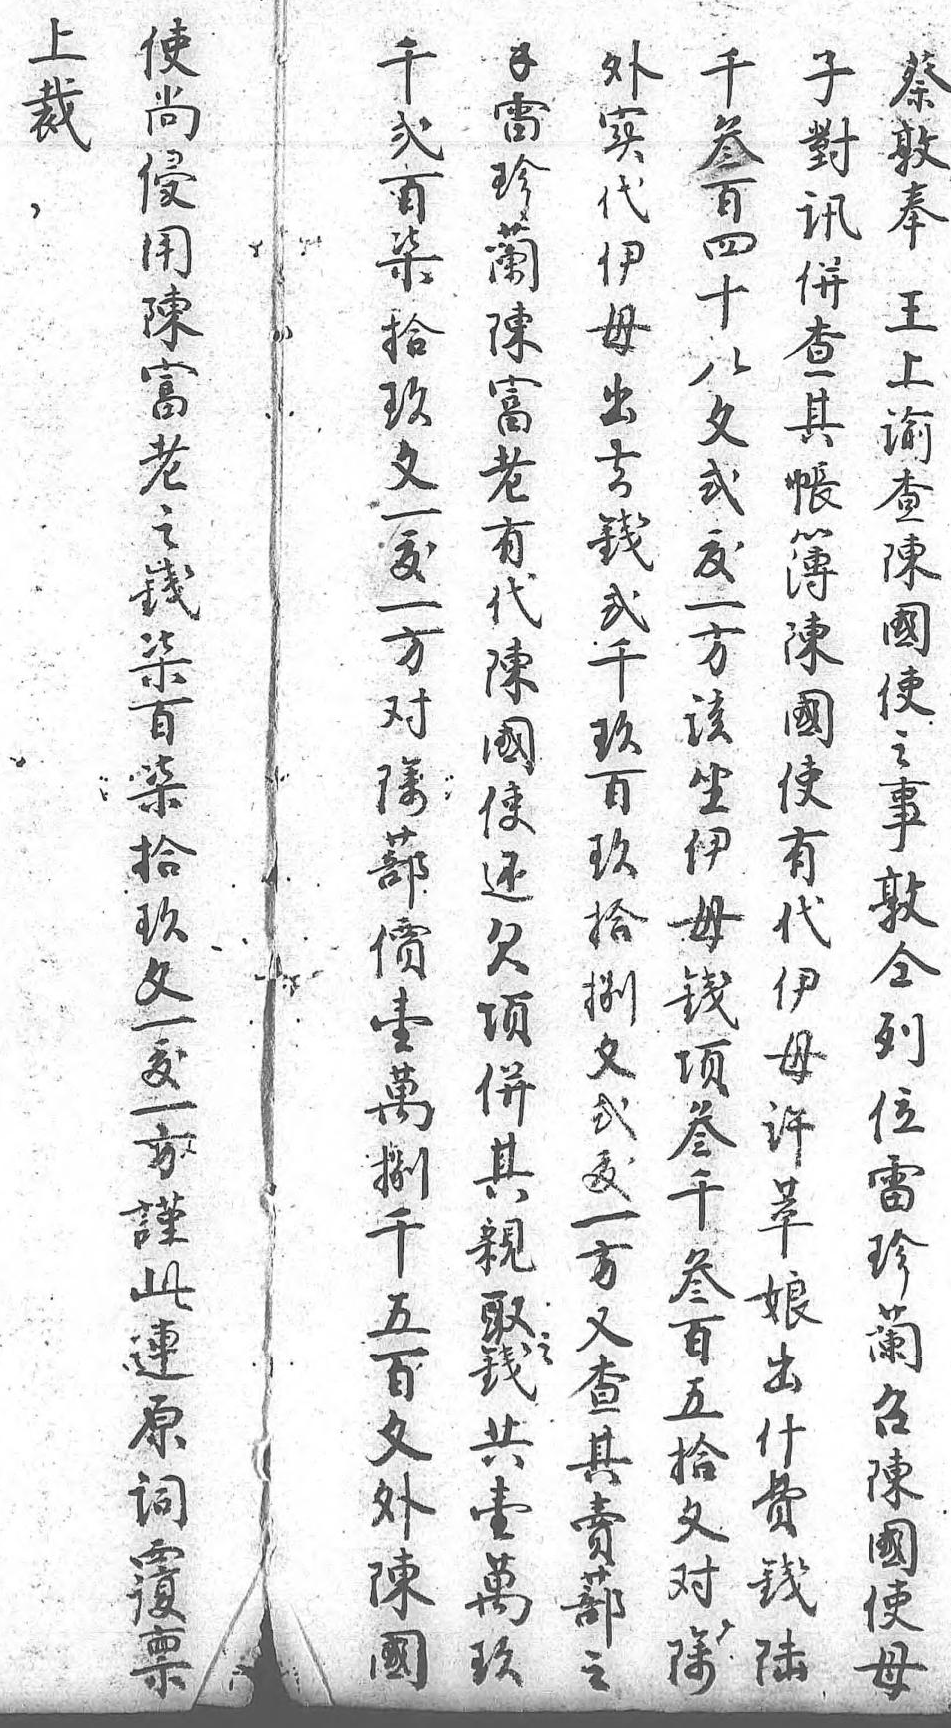 蔡敦奉　王上諭查陳國使之事敦仝列位雷珍蘭召陳國使母
子對訊併查其帳簿陳國使有代伊母許草娘出什費錢陆
千叁百四十八文弍孛一方該坐伊母錢項叁千叁百五拾文对除
外实代伊母出去錢弍千玖百玖拾捌文弍孛一方又查其賣蔀之
手雷珍蘭陳富老有代陳國使还欠項併其親取錢共壹萬玖
千弍百柒拾玖文一孛一方对除蔀價壹萬捌千五百文外陳國
使尚侵用陳富老之錢柒百柒拾玖文一孛一方謹此連原詞覆禀
上裁，